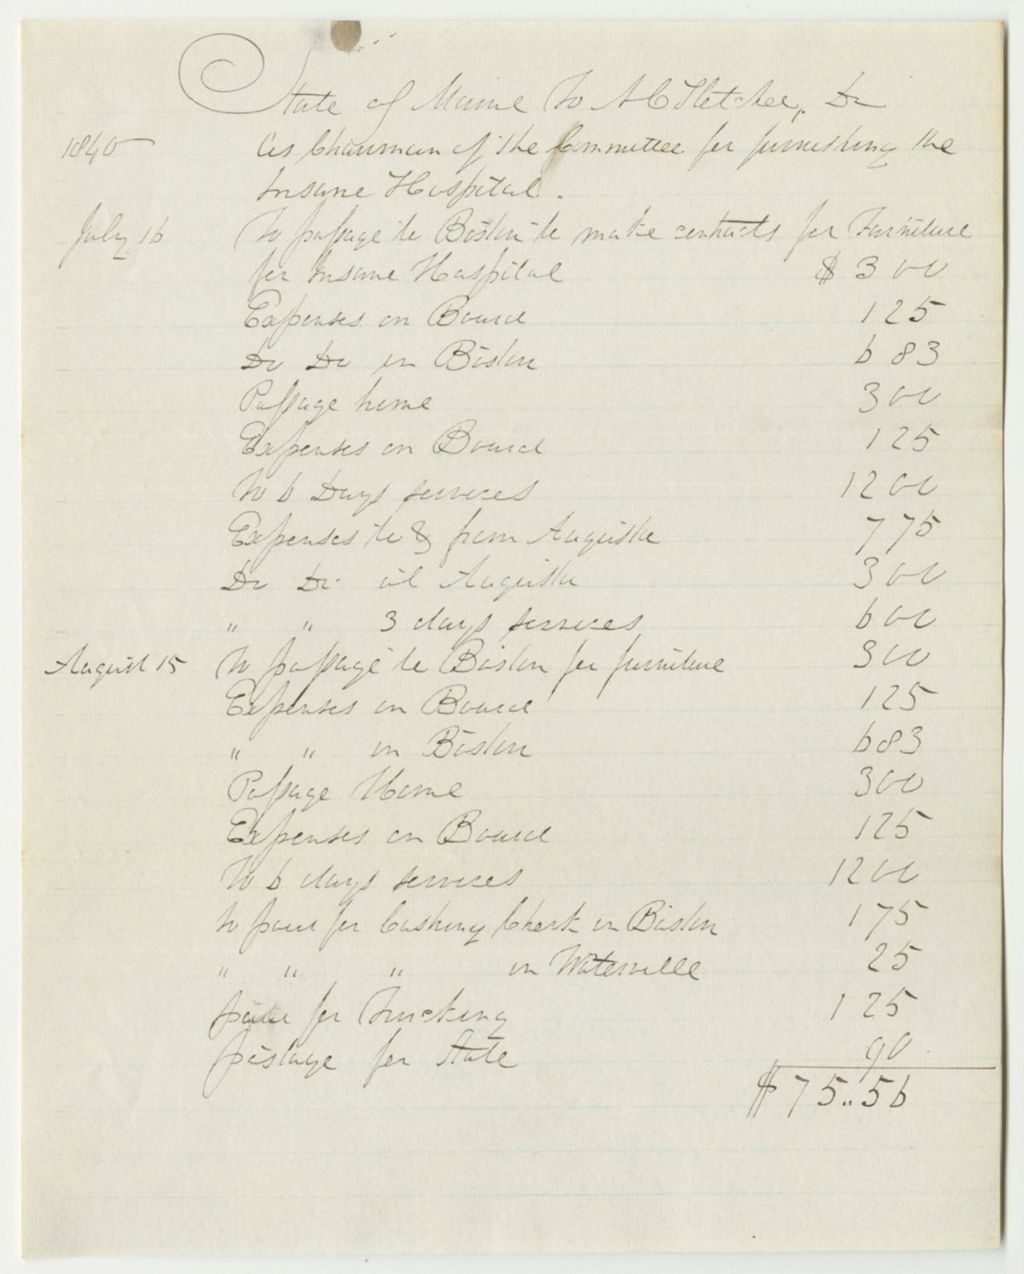 State of Maine To A C Fletcher, Dr
1840 As Chairman of the Committee for furnishing the
Insane Hospital.
July 16 To passage to Boston to make contracts for Furniture
for Insane Hospital $ 3 00
Expenses on Board 1 25
Do Do in Boston 6 83
Passage home 3 00
Expenses on Board 1 25
To 6 Days services 12 00
Expenses to & from Augusta 7 75
Do Do at Augusta 3 00
" " 3 days services 6 00
August 15 To passage to Boston for furniture 3 00
Expenses on Board 1 25
" " in Boston 6 83
Passage Home 3 00
Expenses on Board 1 25
To 6 days services 12 00
To paid for Cashing Check in Boston 1 75
" " " in Waterville 25
paid for Trucking 1 25
postage for State 90
$75..56